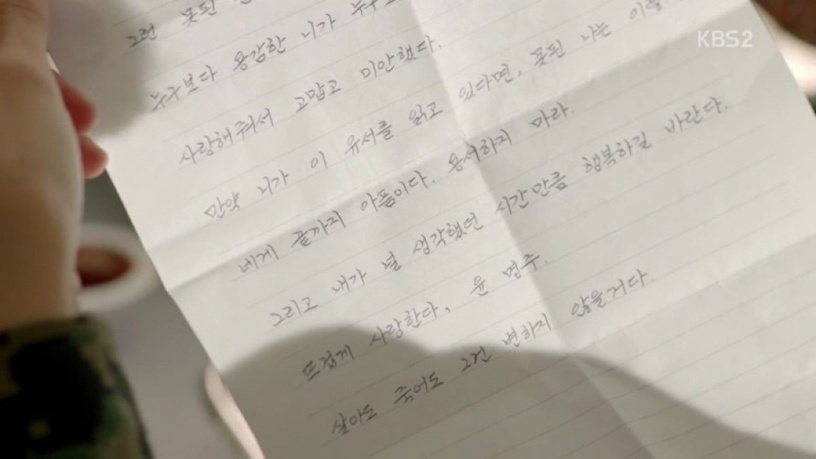 KBS2
그런 못된
누구보다 용감한 니가
사랑해줘서 고맙고 미안했다.
만약 니가 이 유서를 읽고 있다면, 못된 나는 이렇
네게 끝까지 아픔이다. 용서하지 마라.
그리고 내가 널 생각했던 시간만큼 행복하길 바란다.
뜨겁게 사랑한다, 윤 명주.
살아도 죽어도 그건 변하지 않을거다.